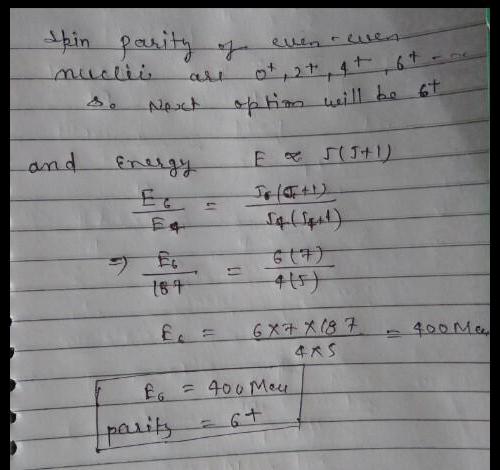 Spin parity of even-even
nuclii are 0+, 2+, 4+, 6+ --
So Next option will be 6+
and Energy E ∝ J(J+1)
E6 / E4 = J6(J6+1) / J4(J4+1)
⇒ E6 / 187 = 6(7) / 4(5)
E6 = 6×7×187 / 4×5 = 400 Mev
E6 = 400 Mev
parity = 6+